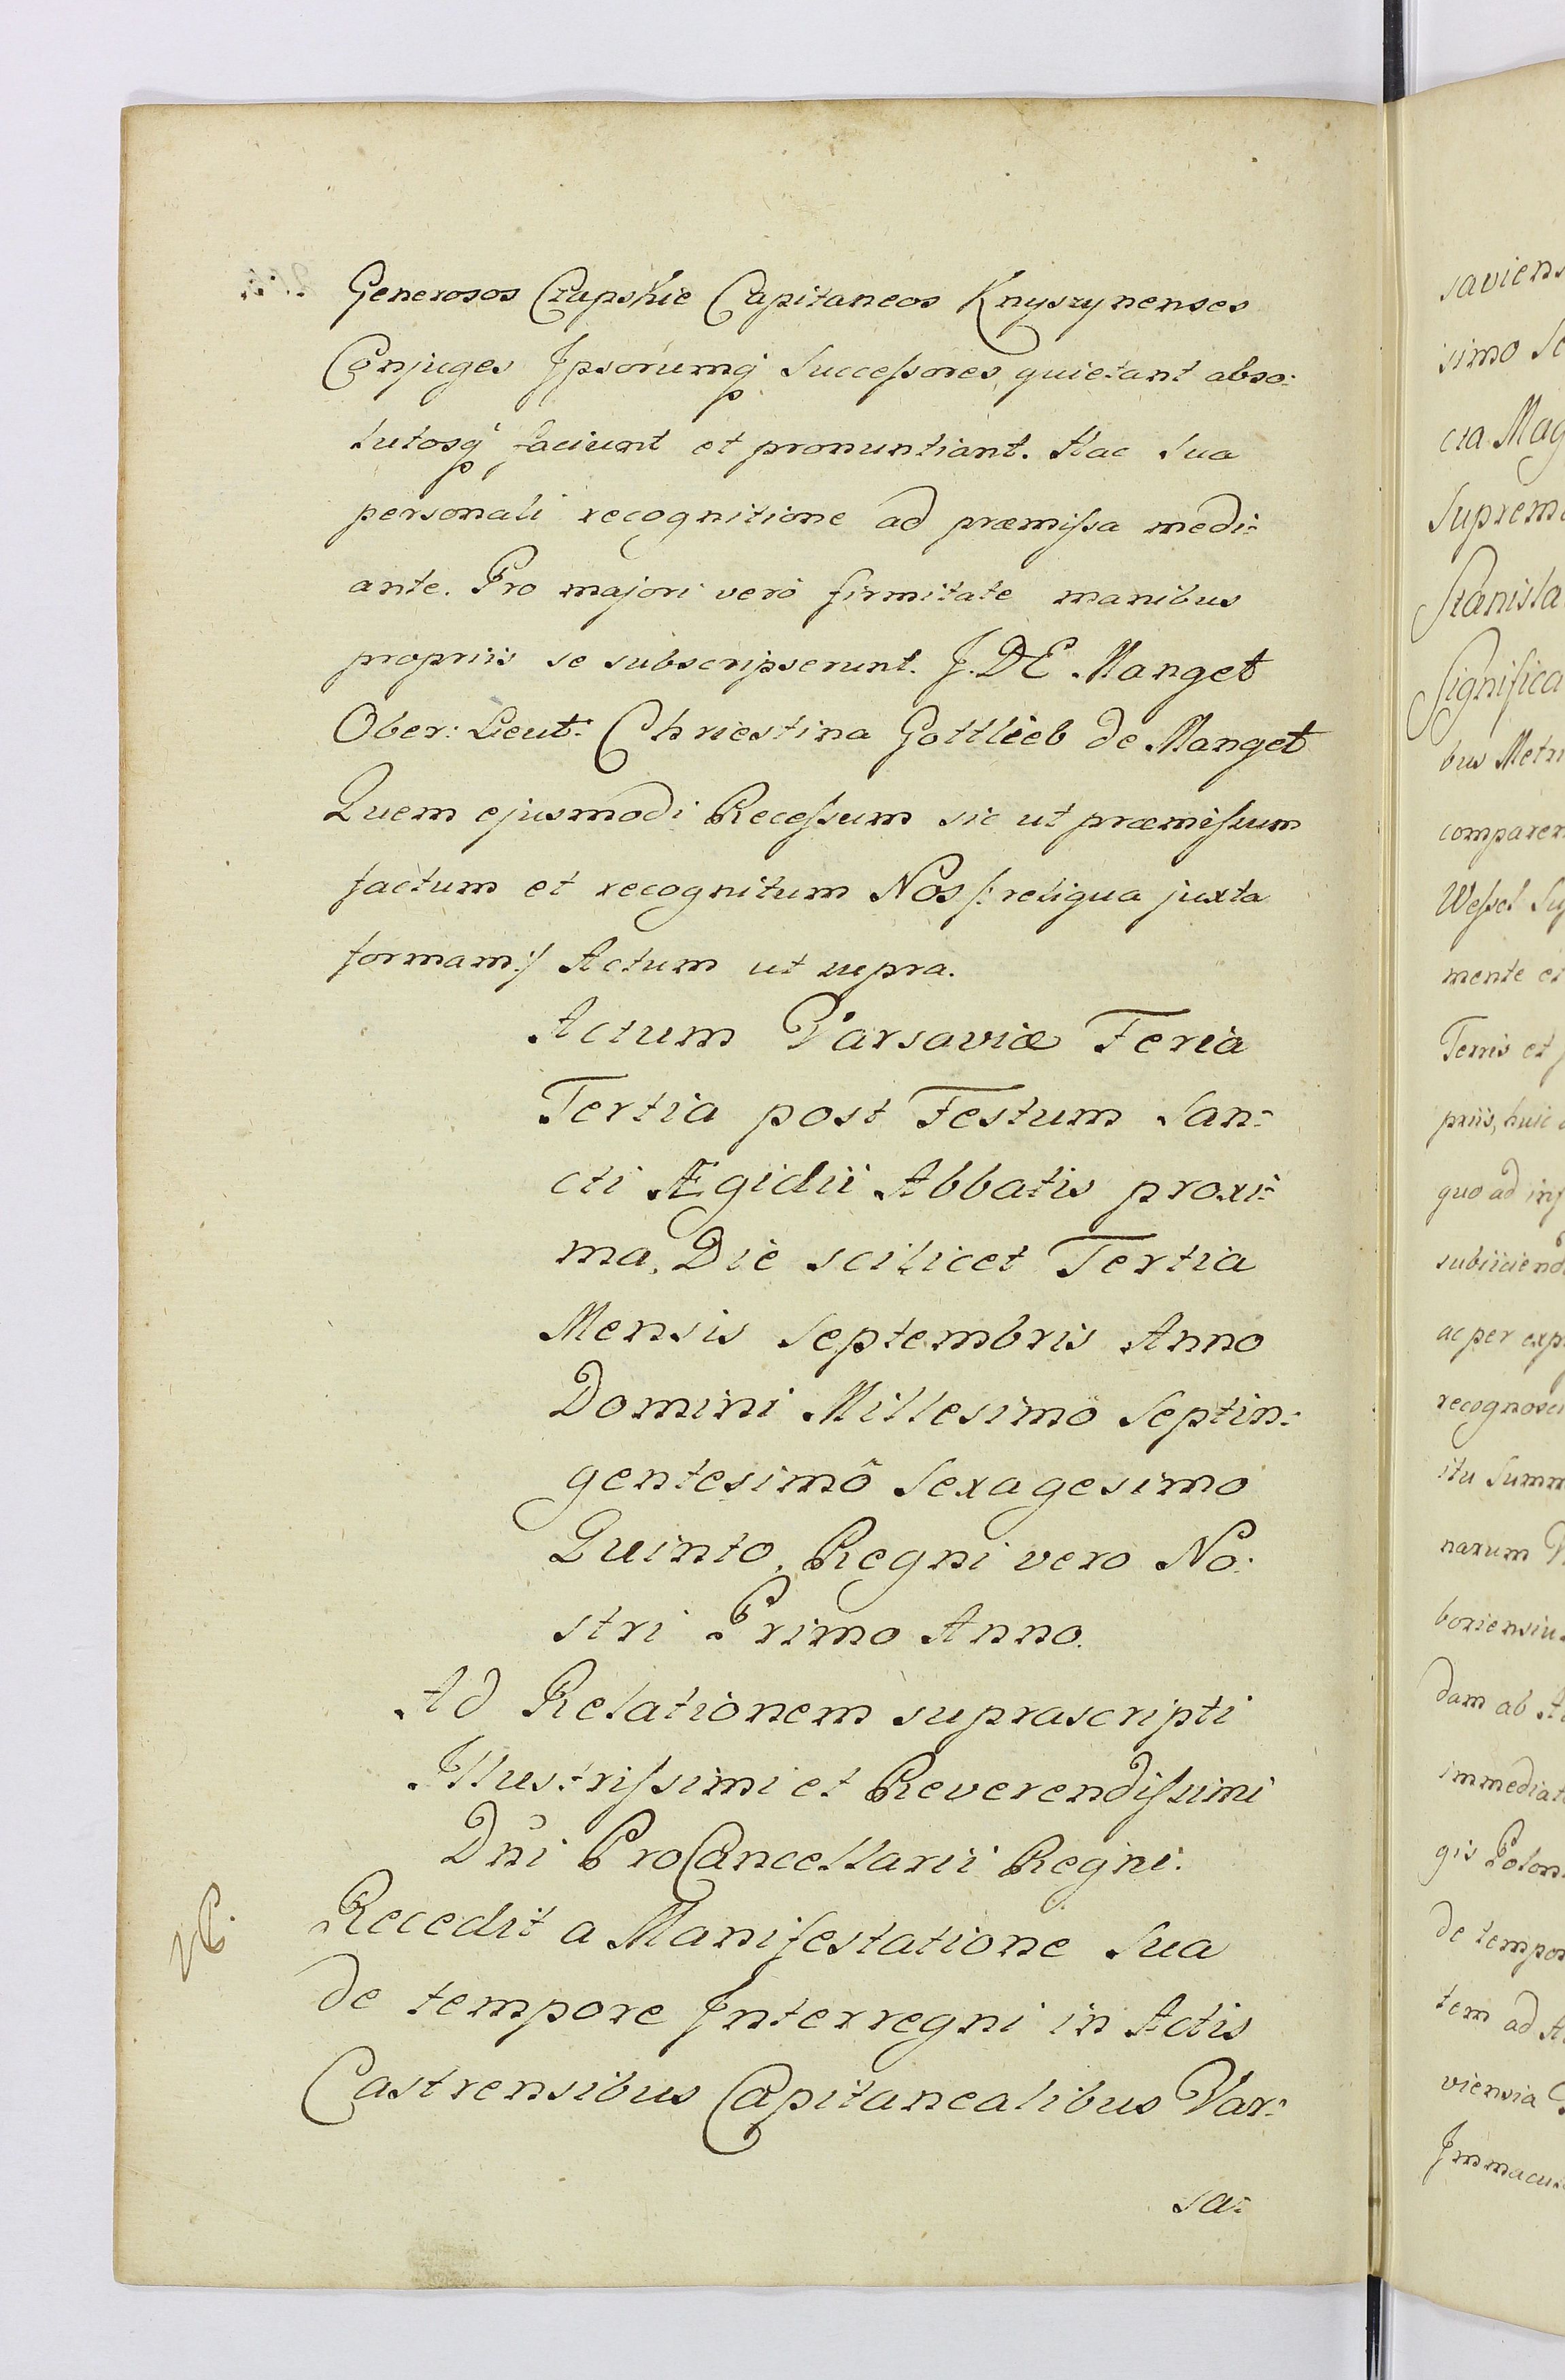 Generosos Czapskie Capitaneos Knyszynenses
Conjuges Ipsorumq́ Succeſsores, quietant abso:
lutosq́ faciunt et pronuntiant. Hac Sua
personali recognitione ad præmiſsa medi:
ante. Pro majori verò firmitate manibus
propriis se subscripserunt. J. DE Manget
Ober: Leut: Chriestina Gottlieb de Manget
Quem ejusmodi Receſsum sic ut præmiſsum
factum et recognitum Nos /: reliqua juxta
formam :/ Actum ut supra.
Actum Varsaviæ Feria
Tertia post Festum San:
cti Ægidii Abbatis proxi:
ma, Die scilicet Tertia
Mensis Septembris Anno
Domini Millesimô Septin:
gentesimô Sexagesimo
Quinto, Regni vero No:
stri Primo Anno.
Ad Relationem suprascripti
Illustriſsimi et Reverendiſsimi
Dni ProCancellarii Regni.
Recedit a Manifestatione Sua
de tempore Interregni in Actis
Castrensibus Capitanealibus Var:
sa:
saviens
isimo
cta Mag
Suprem
Stanisla
Significa
bus Metri
comparen
Weſsel Su
mente et
Terris et
priis, huic
quo ad inf
subiiciend
ac per exp
recognosci
itu Summ
narum
boriensiu
dam ab
immediat
gis Polon
de tempor
tem ad
viensia
Immacu